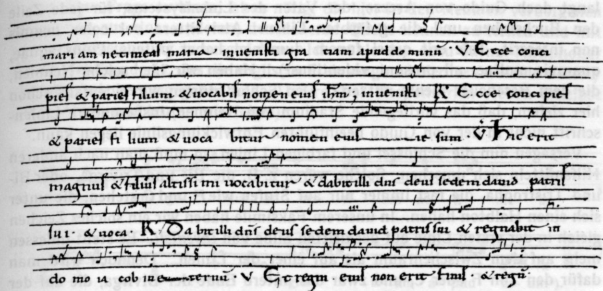 mari am netimeas maria invenisti gra tiam apud do minū V Ecce conci
pies & paries filium & vocabis nomen eius ihm; invenisti. R Ecce conci pies
& paries fi lium & voca bitur nomen eius ie sum. V Hic erit
magnus & filius altissi mi vocabitur & dabit illi dns deus sedem david patris
sui. & voca. R Dabit illi dns deus sedem david patris sui & regnabit in
do mo ia cob in e ternū V Et regni eius non erit finis. & regn